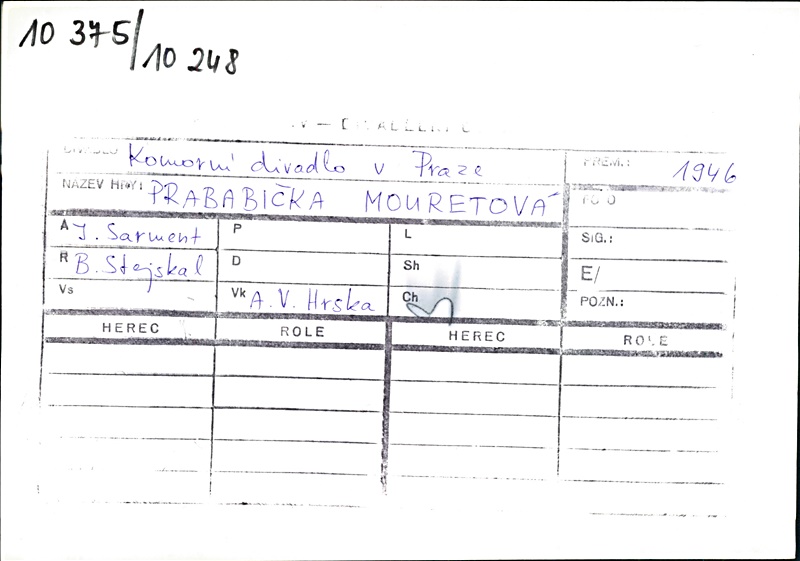 10 375/10 248
DIVADLO Komorní divadlo v Praze PREM.: 1946
NÁZEV HRY: PRABABIČKA MOURETOVÁ FOTO
A J. Sarment P L SIG.:
R B. Stejskal D Sh E/
Vs Vk A. V. Hrska Ch POZN.:
HEREC ROLE HEREC ROLE